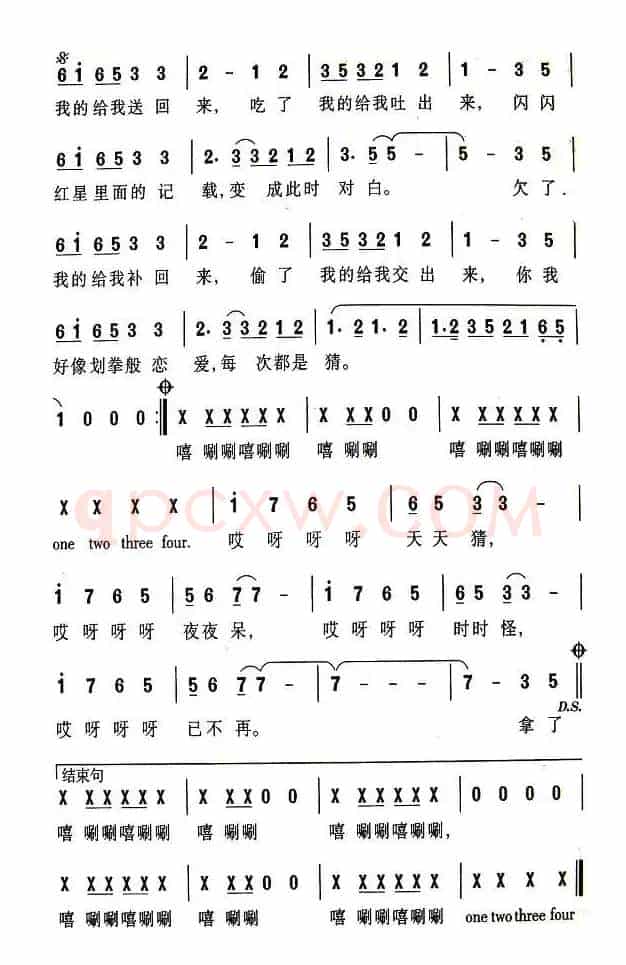 6 i 6 5 3 3 | 2 - 1 2 | 3 5 3 2 1 2 | 1 - 3 5 |
我的给我送回 来, 吃了 我的给我吐出 来, 闪闪
6 i 6 5 3 3 | 2. 3 3 2 1 2 | 3. 5 5 - | 5 - 3 5 |
红星里面的记 载,变 成此时 对白。 欠了.
6 i 6 5 3 3 | 2 - 1 2 | 3 5 3 2 1 2 | 1 - 3 5 |
我的给我补回 来, 偷了 我的给我交出 来, 你我
6 i 6 5 3 3 | 2. 3 3 2 1 2 | 1. 2 1. 2 | 1. 2 3 5 2 1 6 5 |
好像划拳般恋 爱,每 次都是 猜。
1 0 0 0 :‖ X X X X X X | X X X 0 0 | X X X X X X |
嘻 唰唰嘻唰唰 嘻 唰唰 嘻 唰唰嘻唰唰
X X X X | i 7 6 5 | 6 5 3 3 - |
one two three four. 哎 呀 呀 呀 天天猜,
qpcxw.COM
i 7 6 5 | 5 6 7 7 - | i 7 6 5 | 6 5 3 3 - |
哎呀呀呀 夜夜呆, 哎呀呀呀 时时怪,
i 7 6 5 | 5 6 7 7 - | 7 - - - | 7 - 3 5 ‖
D.S.
哎呀呀呀 已不再。 拿了
结束句
X X X X X X | X X X 0 0 | X X X X X X | 0 0 0 0 |
嘻 唰唰嘻唰唰 嘻 唰唰 嘻 唰唰嘻唰唰,
X X X X X X | X X X 0 0 | X X X X X X | X X X X ‖
嘻 唰唰嘻唰唰 嘻 唰唰 嘻 唰唰嘻唰唰 one two three four